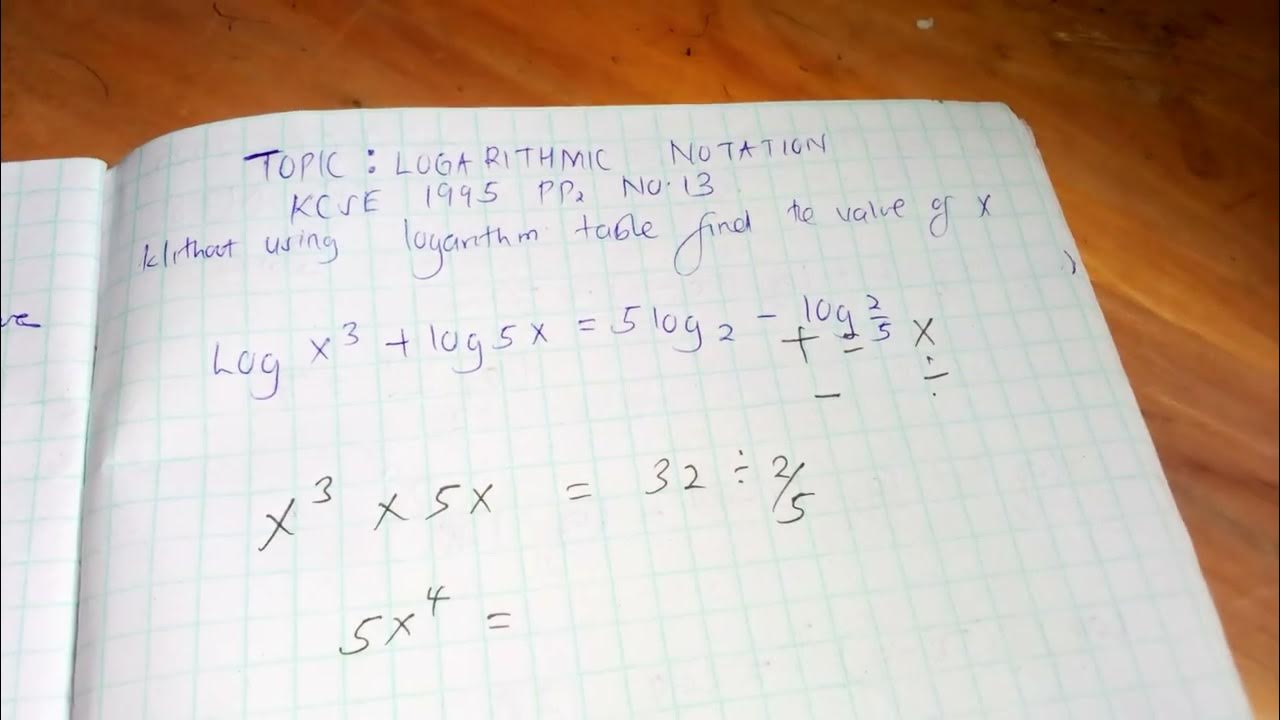 TOPIC: LOGARITHMIC NOTATION
KCSE 1995 PP2 NO.13
Without using logarithm table find the value of x
Log x³ + log 5x = 5 log 2 - log 2/5
+ - x
- ÷
x³ × 5x = 32 ÷ 2/5
5x⁴ =